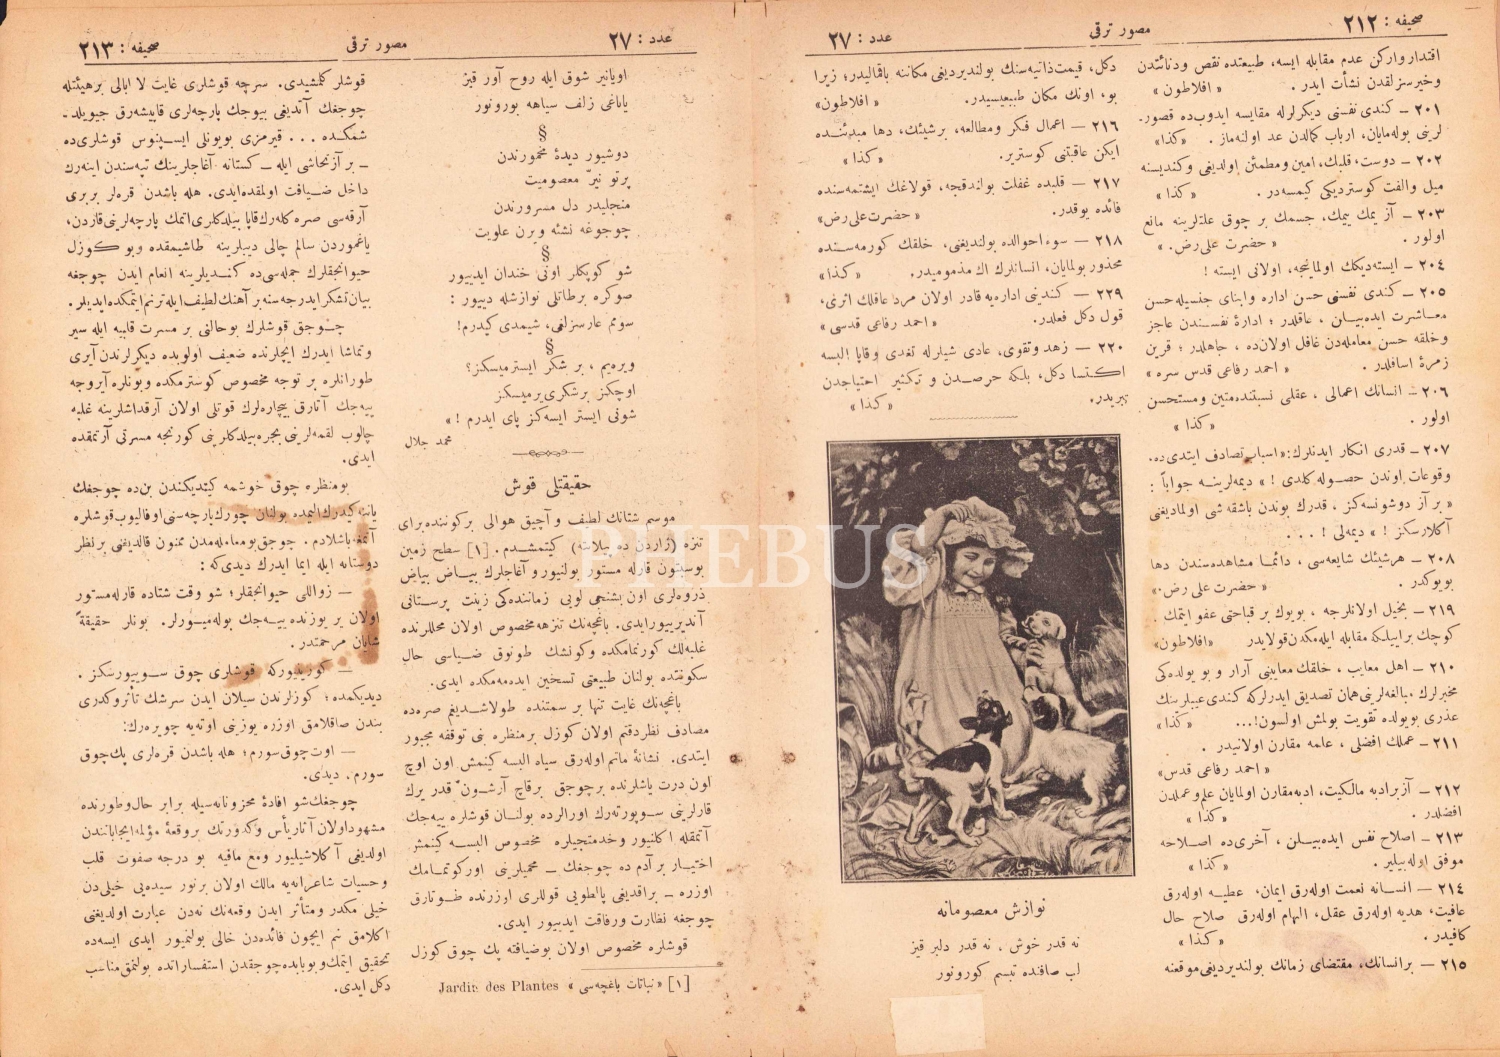 صحیفه : ٢١٢
مصور ترقی
عدد : ٢٧
اقتدار وارکن عدم مقابله ایسه، طبیعتده نقص و دنائتدن
و خیرسزلقدن نشأت ایدر . « افلاطون »
٢٠١ – کندی نفسنی دیکرلرله مقایسه ایدوب ده قصور
لرینی بوله‌مایان، ارباب کمالدن عد اولنه‌ماز . « کذا »
٢٠٢ – دوست، قلبك، امین و مطمئن اولدیغی و کندیسنه
میل و الفت کوستردیکی کیمسه‌در . « کذا »
٢٠٣ – آز یمك ییمك، جسمك بر چوق علتلرینه مانع
اولور . « حضرت علی رض . »
٢٠٤ – ایسته‌دیکك اولماینجه، اولانی ایسته !
٢٠٥ – کندی نفسنی حسن اداره و ابنای جنسیله حسن
معاشرت ایده‌بیلن ، عاقلدر ؛ ادارهٔ نفسندن عاجز
و خلقه حسن معامله‌دن غافل اولان‌ده ، جاهلدر ؛ قرین
زمرهٔ اسافلدر . « احمد رفاعی قدس سره »
٢٠٦ – انسانك اعمالی ، عقلی نسبتنده متین و مستحسن
اولور . « کذا »
٢٠٧ – قدری انکار ایدنلرك: «اسباب تصادف ایتدی‌ده،
وقوعات اوندن حصوله کلدی ! » دیمه‌لرینه جواباً :
« بر آز دوشونسه‌کز ، قدرك بوندن باشقه شی اولمادیغی
آکلارسکز ! » دیمه‌لی ! . . .
٢٠٨ – هر شیئك شایعه‌سی ، دائما مشاهده‌سندن دها
بویوکدر . « حضرت علی رض . »
٢١٩ – بخیل اولانلرجه ، بویوك بر قباحتی عفو ایتمك .
کوچك بر ایبلکه مقابله ایله‌مکدن قولایدر «افلاطون»
٢١٠ – اهل معایب ، خلقك معایبنی آرار و بو یولده‌کی
مخبرلرك مبالغه‌لرینی همان تصدیق ایدرلرکه کندی عیبلرینك
عذری بو یولده تقویت بولمش اولسون!... « کذا »
٢١١ – عملك افضلی ، علمه مقارن اولانیدر .
« احمد رفاعی قدس»
٢١٢ – آز بر ادبه مالکیت، ادبه مقارن اولمایان علم و عملدن
افضلدر . « کذا »
٢١٣ – اصلاح نفس ایده‌بیلن ، آخری‌ده اصلاحه
موفق اوله‌بیلیر . « کذا »
٢١٤ – انسانه نعمت اوله‌رق ایمان، عطیه اوله‌رق
عافیت، هدیه اوله‌رق عقل، الهام اوله‌رق صلاح حال
کافیدر . « کذا »
٢١٥ – بر انسانك، مقتضای زمانك بولندیردیغی موقعنه
دکل، قیمت ذاتیه‌سنك بولندیردیغی مکاننه باقمالیدر؛ زیرا
بو، اونك مکان طبیعیسیدر. « افلاطون»
٢١٦ – اعمال فکر و مطالعه، بر شیئك، دها مبدئنده
ایکن عاقبتنی کوستریر. « کذا »
٢١٧ – قلبده غفلت بولندقجه، قولاغك ایشتمه‌سنده
فائده یوقدر. « حضرت علی رض»
٢١٨ – سوء احوالده بولندیغنی، خلقك کورمه‌سنده
محذور بولمایان، انسانلرك اك مذمومیدر. « کذا »
٢٢٩ – کندینی اداره‌یه قادر اولان مرد عاقلك اثری،
قول دکل فعلدر. « احمد رفاعی قدسی »
٢٢٠ – زهد و تقوی، عادی شیلرله تغدی و قاپا البسه
اکتسا دکل، بلکه حرصدن و تکثیر احتیاجدن
تبریدر. « کذا »
نوازش معصومانه
نه قدر خوش ، نه قدر دلبر قیز
لب صافنده تبسم کورونور
صحیفه : ٢١٣
مصور ترقی
عدد : ٢٧
اویانیر شوق ایله روح آور قیز
یاناغی زلف سیاهه بورونور
§
دوشیور دیدهٔ مخمورندن
پرتو نیر معصومیت
منجلیدر دل مسرورندن
چوجوغه نشئه ویرن علویت
§
شو کوپکلر اونی خندان ایدییور
صوکره بر طاتلی نوازشله دییور :
سوم عارسزلغی، شیمدی کیدرم!
§
ویره‌یم ، بر شکر ایسترمیسکز؟
اوچکز بر شکری یرمیسکز
شونی ایستر ایسه‌کز پای ایدرم ! »
محمد جلال
حقیقتلی قوش
موسم شتانك لطیف و آچیق هوالی بر کوننده برای
تنزه (ژاردن ده پلانت) کیتمشدم . [١] سطح زمین
بوسبتون قارله مستور بولنیور و آغاجلرك بیاض بیاض
ذروه‌لری اون بشنجی لویی زماننده‌کی زینت پرستانی
آندیرییور ایدی. باغچه‌نك تنزهه مخصوص اولان محللرنده
غلبه‌لك کورنمامکده و کونشك طونوق ضیاسی حال
سکونتده بولنان طبیعتی تسخین ایده‌مه‌مکده ایدی.
باغچه‌نك غایت تنها بر سمتنده طولاشدیغم صره‌ده
مصادف نظر دقتم اولان کوزل بر منظره بنی توقفه مجبور
ایتدی. نشانهٔ ماتم اوله‌رق سیاه البسه کیمش اون اوچ
اون درت یاشلرنده بر چوجق برقاچ آرشون قدر یرك
قارلرینی سوپورته‌رك اورالرده بولنان قوشلره ییه‌جك
آتمقله اکلنیور و خدمتجیلره مخصوص البسه کیمش
اختیار بر آدم ده چوجغك
اوزره – براقدیغی پالطویی قوللری اوزرنده طوتارق
چوجغه نظارت و رفاقت ایدییور ایدی.
قوشلره مخصوص اولان بو ضیافته پك چوق کوزل
[١] « نباتات باغچه‌سی » Jardin des Plantes
قوشلر کلمشیدی. سرچه قوشلری غایت لا ابالی بر هیئتله
چوجغك آتدیغی بیوجك پارچه‌لری قاپیشه‌رق جیویلد-
شمکده ... قیرمزی بویونلی ایسپنوس قوشلری‌ده
– بر آز تحاشی ایله – کستانه آغاجلرینك تپه‌سندن اینه‌رك
داخل ضیافت اولمقده ایدی. هله باشدن قره‌لر بربری
آرقه‌سی صره کله‌رك قاپا بیلدکلری اتمك پارچه‌لرینی قاردن،
یاغموردن سالم چالی دیبلرینه طاشیمقده و بو کوزل
حیوانجقلرك جمله‌سی‌ده کندیلرینه انعام ایدن چوجغه
بیان تشکر ایدرجه‌سنه بر آهنك لطیف ایله ترنم ایتمکده ایدیلر.
چوجق قوشلرك بو حالنی بر مسرت قلبیه ایله سیر
و تماشا ایدرك ایچلرنده ضعیف اولوبده دیکرلرندن آیری
طورانلره بر توجه مخصوص کوسترمکده و بونلره آیروجه
ییه‌جك آتارق بیچاره‌لرك قوتلی اولان آرقداشلرینه غلبه
چالوب لقمه‌لرینی ییجره‌بیلدکلرینی کورنجه مسرتی آرتمقده
ایدی.
بو منظره چوق خوشمه کیتدیکندن بن‌ده چوجغك
یاننه کیدرك المده بولنان چورك پارچه‌سنی اوفالیوب قوشلره
آتمغه باشلادم . چوجق بو معامله‌مدن ممنون قالدیغنی بر نظر
دوستانه ایله ایما ایدرك دیدی‌که :
– زواللی حیوانجقلر؛ شو وقت شتاده قارله مستور
اولان یر یوزنده ییه‌جك بوله‌میورلر. بونلر حقیقةً
شایان مرحمتدر.
– کورینیورکه قوشلری چوق سویورسکز .
دیدیکمده ؛ کوزلرندن سیلان ایدن سرشك تأثر و کدری
بندن صاقلامق اوزره یوزینی اوته‌یه چویره‌رك:
– اوت چوق سورم؛ هله باشدن قره‌لری پك چوق
سورم. دیدی.
چوجغك شو افادهٔ محزونانه‌سیله برابر حال و طورنده
مشهود اولان آثار یأس و کدورتك بر وقعهٔ مؤلمه ایجاباتندن
اولدیغی آکلاشیلیور و مع مافیه بو درجه صفوت قلب
و حسیات شاعرانه‌یه مالك اولان بر نور سیده‌یی خیلی‌دن
خیلی مکدر و متأثر ایدن وقعه‌نك نه‌دن عبارت اولدیغنی
اکلامق بنم ایچون فائده‌دن خالی بولنمیور ایدی ایسه‌ده
تحقیق ایتمك و بو بابده چوجقدن استفساراتده بولنمق مناسب
دکل ایدی.
PHEBUS